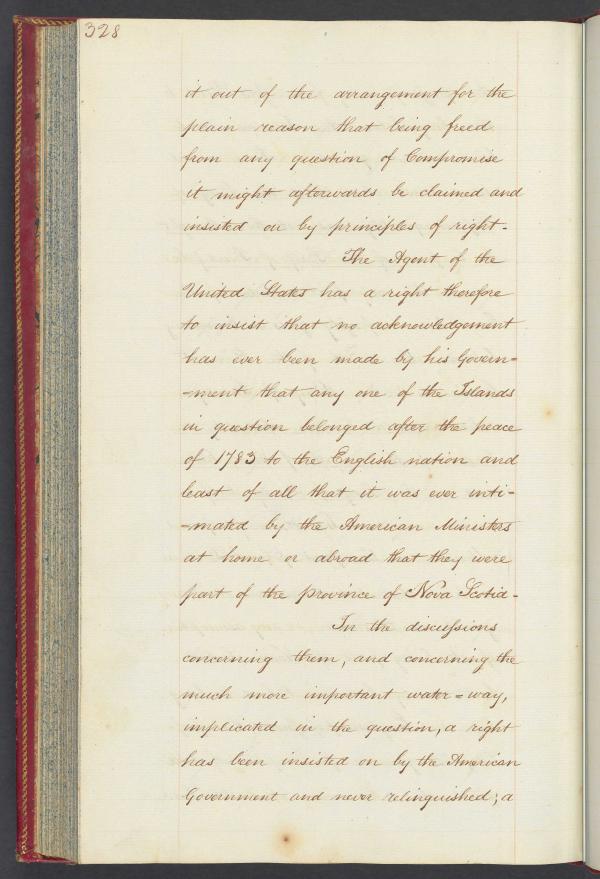 328
it out of the arrangement for the
plain reason that being freed
from any question of Compromise
it might afterwards be claimed and
insisted on by principles of right.
The Agent of the
United States has a right therefore
to insist that no acknowledgement
has ever been made by his Govern=
=ment that any one of the Islands
in question belonged after the peace
of 1783 to the English nation and
least of all that it was ever inti=
=mated by the American Ministers
at home or abroad that they were
part of the province of Nova Scotia.
In the discussions
concerning them, and concerning the
much more important water=way,
implicated in the question, a right
has been insisted on by the American
Government and never relinquished; a